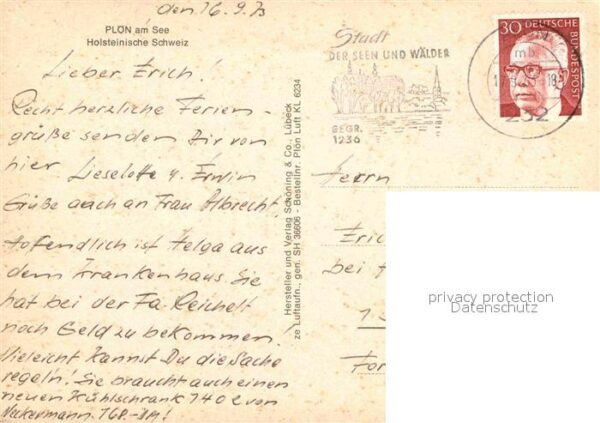 den 16.9.73
PLÖN am See
Holsteinische Schweiz
Lieber Erich!
Recht herzliche Ferien-
grüße senden Dir von
hier Lieselotte u. Erwin
Grüße auch an Frau Albrecht,
Hofendlich ist Helga aus
dem Krankenhaus. Sie
hat bei der Fa. Reichelt
noch Geld zu bekommen.
Vieleicht kannst Du die Sache
regeln! Sie braucht auch einen
neuen Kühlschrank 140 l von
Neckermann. 168,-DM!
Hersteller und Verlag Schöning & Co., Lübeck
ze Luftaufn., gen. SH 36606 - Bestellnr. Plön Luft KL 6234
Stadt
DER SEEN UND WÄLDER
GEGR.
1236
30 DEUTSCHE BUNDESPOST
232
Herrn
Eric
bei
1
privacy protection
Datenschutz